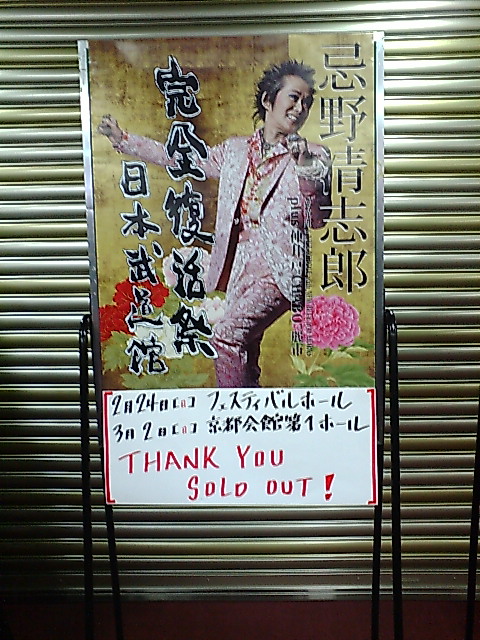 忌野清志郎
完全復活祭
日本武道館
2月24日[日] フェスティバルホール
3月2日[日] 京都会館第1ホール
THANK YOU
SOLD OUT!